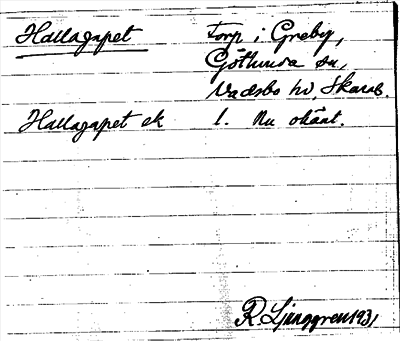 Hallagapet Torp i Greby,
Götlunda sn,
Vadsbo hd Skarab.
Hallagapet ek 1. Nu okänt.
R. Ljunggren 1931